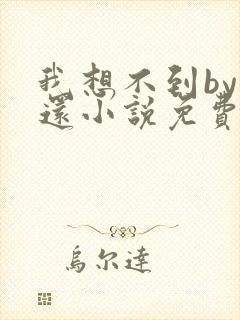 我想不到by
還小說免費
烏尔達